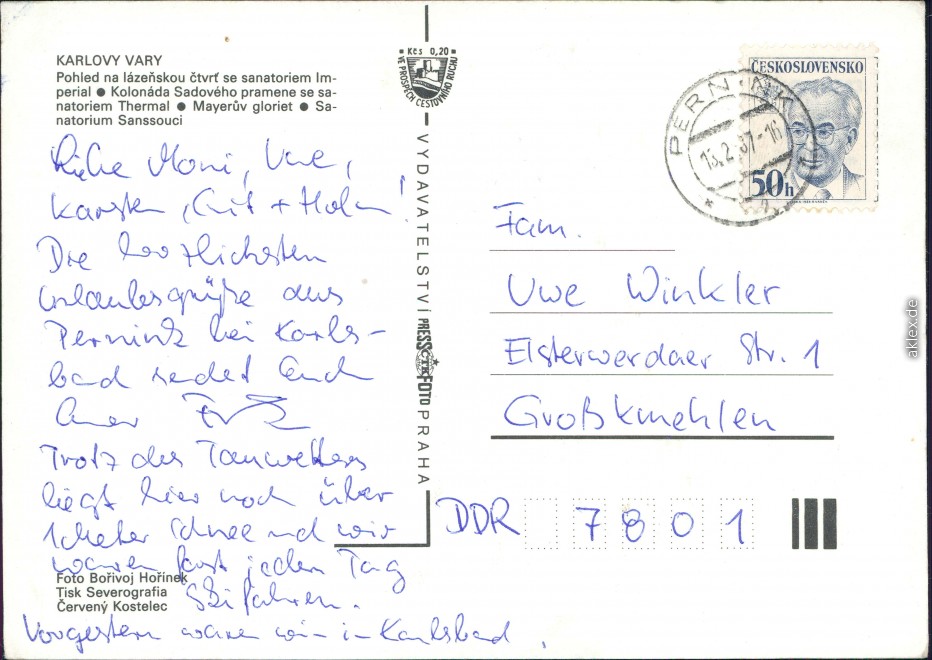 KARLOVY VARY
Pohled na lázeňskou čtvrť se sanatoriem Im-
perial ● Kolonáda Sadového pramene se sa-
natoriem Thermal ● Mayerův gloriet ● Sa-
natorium Sanssouci
Liebe Moni, Uwe,
Karsten, + !
Die herzlichsten
Urlaubsgrüße aus
Pernink bei Karls-
bad sendet Euch
Euer
Trotz des Tauwetters
liegt hier noch über
1 Meter Schnee und wir
waren fast jeden Tag
Ski fahren.
Vorgestern waren wir in Karlsbad.
Foto Bořivoj Hořínek
Tisk Severografia
Červený Kostelec
Kčs 0,20
VE PROSPĚCH CESTOVNÍHO RUCHU
VYDAVATELSTVÍ PRESSFOTO PRAHA
ČTK
ČESKOSLOVENSKO
50h
PERNINK
15.2.87-16
Fam.
Uwe Winkler
Elsterwerdaer Str. 1
Großkmehlen
DDR 7801
aklex.de